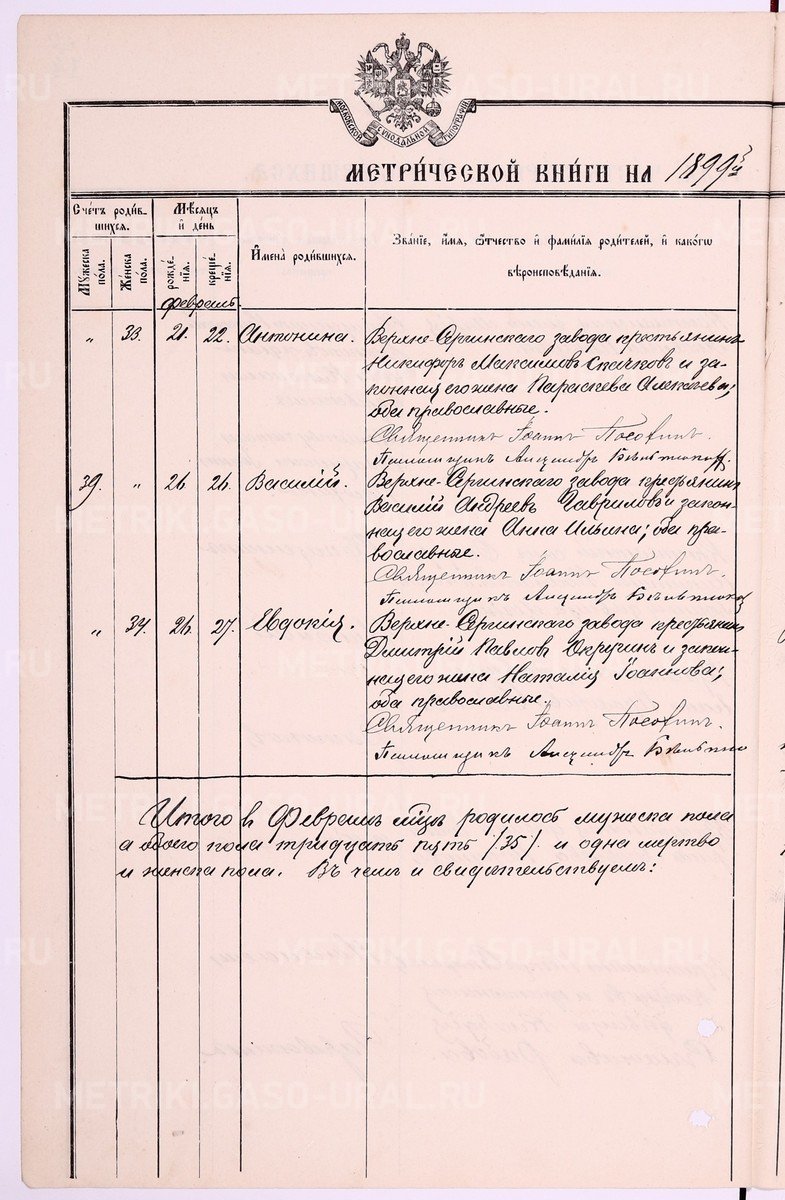 МОСКОВСКОЙ СѴНОДАЛЬНОЙ ТИПОГРАФІИ
МЕТРИ́ЧЕСКОЙ КНИ́ГИ НА 1899й
Сче́тъ роди́в-
шихся.
Мѣ́сяцъ
и҆ де́нь
И҆мена̀ роди́вшихся.
Зва́нїе, и҆́мя, ѻ҆́тчество и҆ фами́лїя роди́телей, и҆ како́гѡ
вѣроисповѣ́данїя.
Му́жеска
пола.
Же́нска
пола.
рожде́-
нїя.
креще́-
нїя.
Февраль.
„ 33. 21. 22. Антонина. Верхне-Сергинскаго завода крестьянинъ
Никифоръ Максимовъ Спичковъ и за-
конная его жена Параскева Алексѣева;
оба православные.
Священникъ Іоаннъ Посохинъ.
Псаломщикъ Александръ
39. „ 26. 26. Василій. Верхне-Сергинскаго завода крестьянинъ
Василій Андреевъ Гавриловъ и закон-
ная его жена Анна Ильина; оба пра-
вославные.
Священникъ Іоаннъ Посохинъ.
Псаломщикъ Александръ
„ 34. 26. 27. Евдокія. Верхне-Сергинскаго завода крестьянинъ
Дмитрій Павловъ и закон-
ная его жена Наталія Іоаннова;
оба православные.
Священникъ Іоаннъ Посохинъ.
Псаломщикъ Александръ
Итого въ Февралѣ м͠цѣ родилось мужска пола
а обоего пола тридцать пять /35/. и одна мертво
и женска пола. Въ чемъ и свидѣтельствуемъ:
METRIKI.GASO-URAL.RU